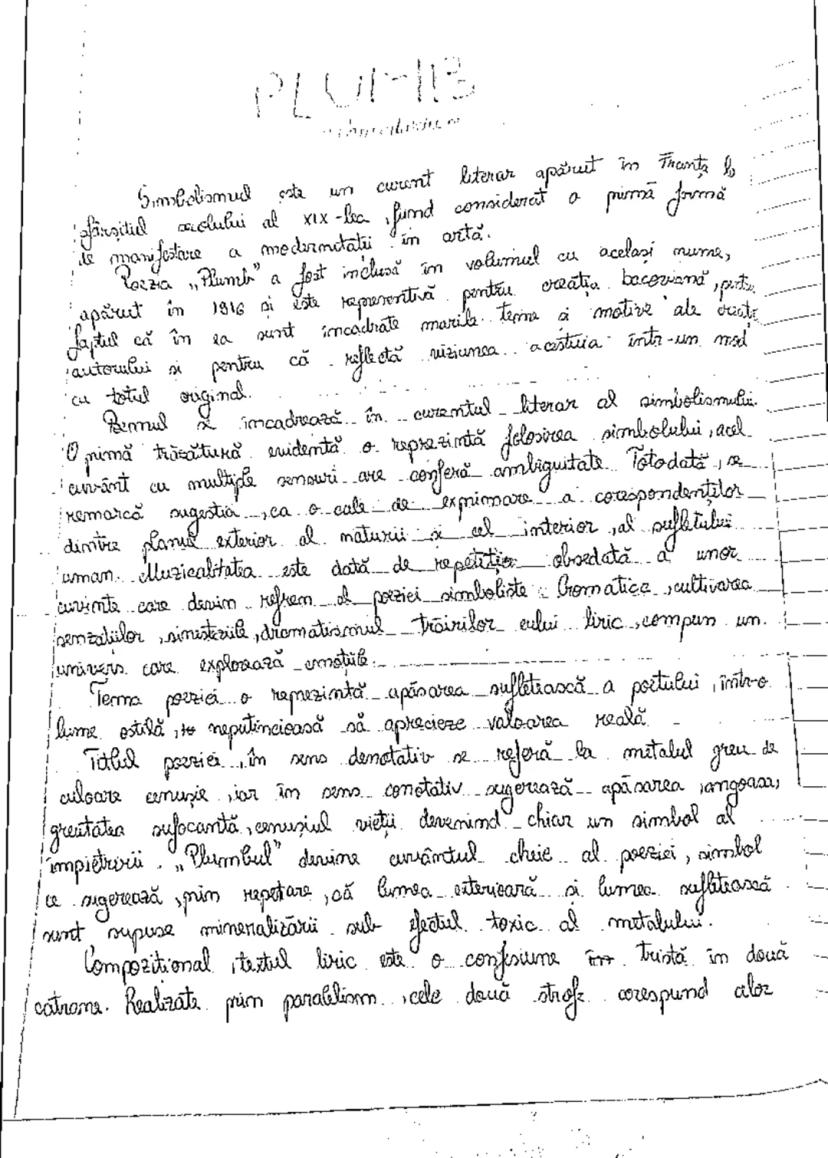 PLUMB
Simbolismul este un curent literar apărut în Franța la
sfârșitul secolului al XIX-lea, fiind considerat o primă formă
de manifestare a modernității în artă.
Poezia „Plumb" a fost inclusă în volumul cu același nume,
apărut în 1916 și este reprezentivă pentru creația bacoviană, pentru
faptul că în ea sunt încadrate marile teme și motive ale creației
autorului și pentru că reflectă viziunea acestuia într-un mod
cu totul original.
Poemul se încadrează în curentul literar al simbolismului.
O primă trăsătură evidentă o reprezintă folosirea simbolului, acel
cuvânt cu multiple sensuri are conferă ambiguitate. Totodată, se
remarcă sugestia, ca o cale de exprimare a corespondențelor
dintre planul exterior al naturii și cel interior, al sufletului
uman. Muzicalitatea este dată de repetiția obsedată a unor
cuvinte care devin refren al poeziei simboliste. Cromatica, cultivarea
senzațiilor, sinesteziile, dramatismul trăirilor eului liric, compun un
univers care explorează emoțiile.
Tema poeziei o reprezintă apăsarea sufletească a poetului, într-o
lume ostilă, neputincioasă să aprecieze valoarea reală.
Titlul poeziei, în sens denotativ se referă la metalul greu de
culoare cenușie, iar în sens conotativ sugerează apăsarea, angoasa,
greutatea sufocantă, cenușiul vieții devenind chiar un simbol al
împietririi. „Plumbul" devine cuvântul cheie al poeziei, simbol
ce sugerează, prin repetare, că lumea exterioară și lumea sufletească
sunt supuse mineralizării sub efectul toxic al metalului.
Compozițional, textul liric este o confesiune tristă în două
catrene. Realizate prin paralelism, cele două strofe corespund celor